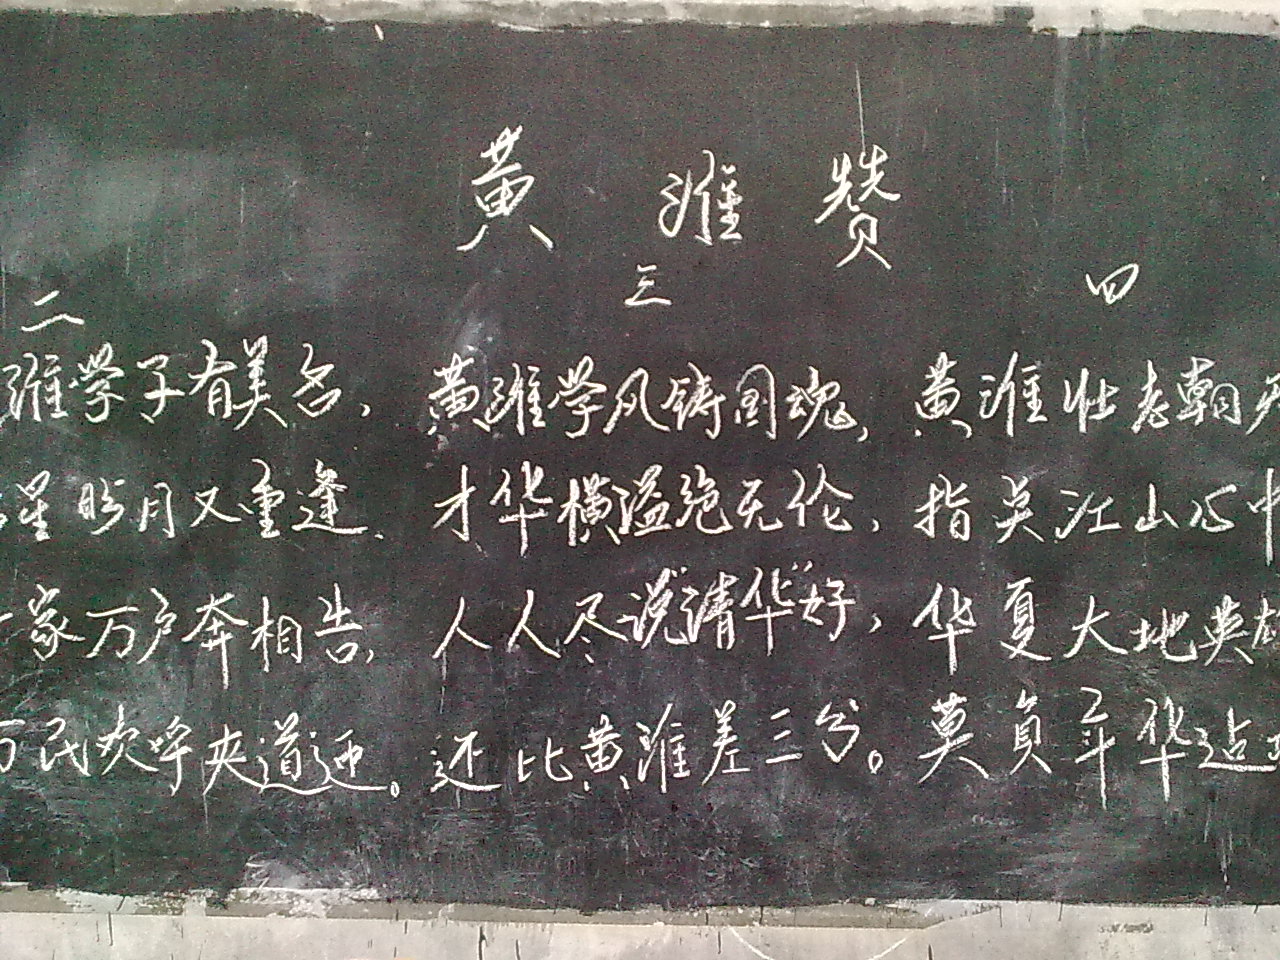 黄淮赞
二
淮学子有美名，
星盼月又重逢．
家万户奔相告，
万民欢呼夹道迎。
三
黄淮学风铸国魂，
才华横溢绝无伦，
人人尽说"清华"好，
还比黄淮差三分。
四
黄淮壮志朝
指点江山心中
华夏大地英雄
莫负年华